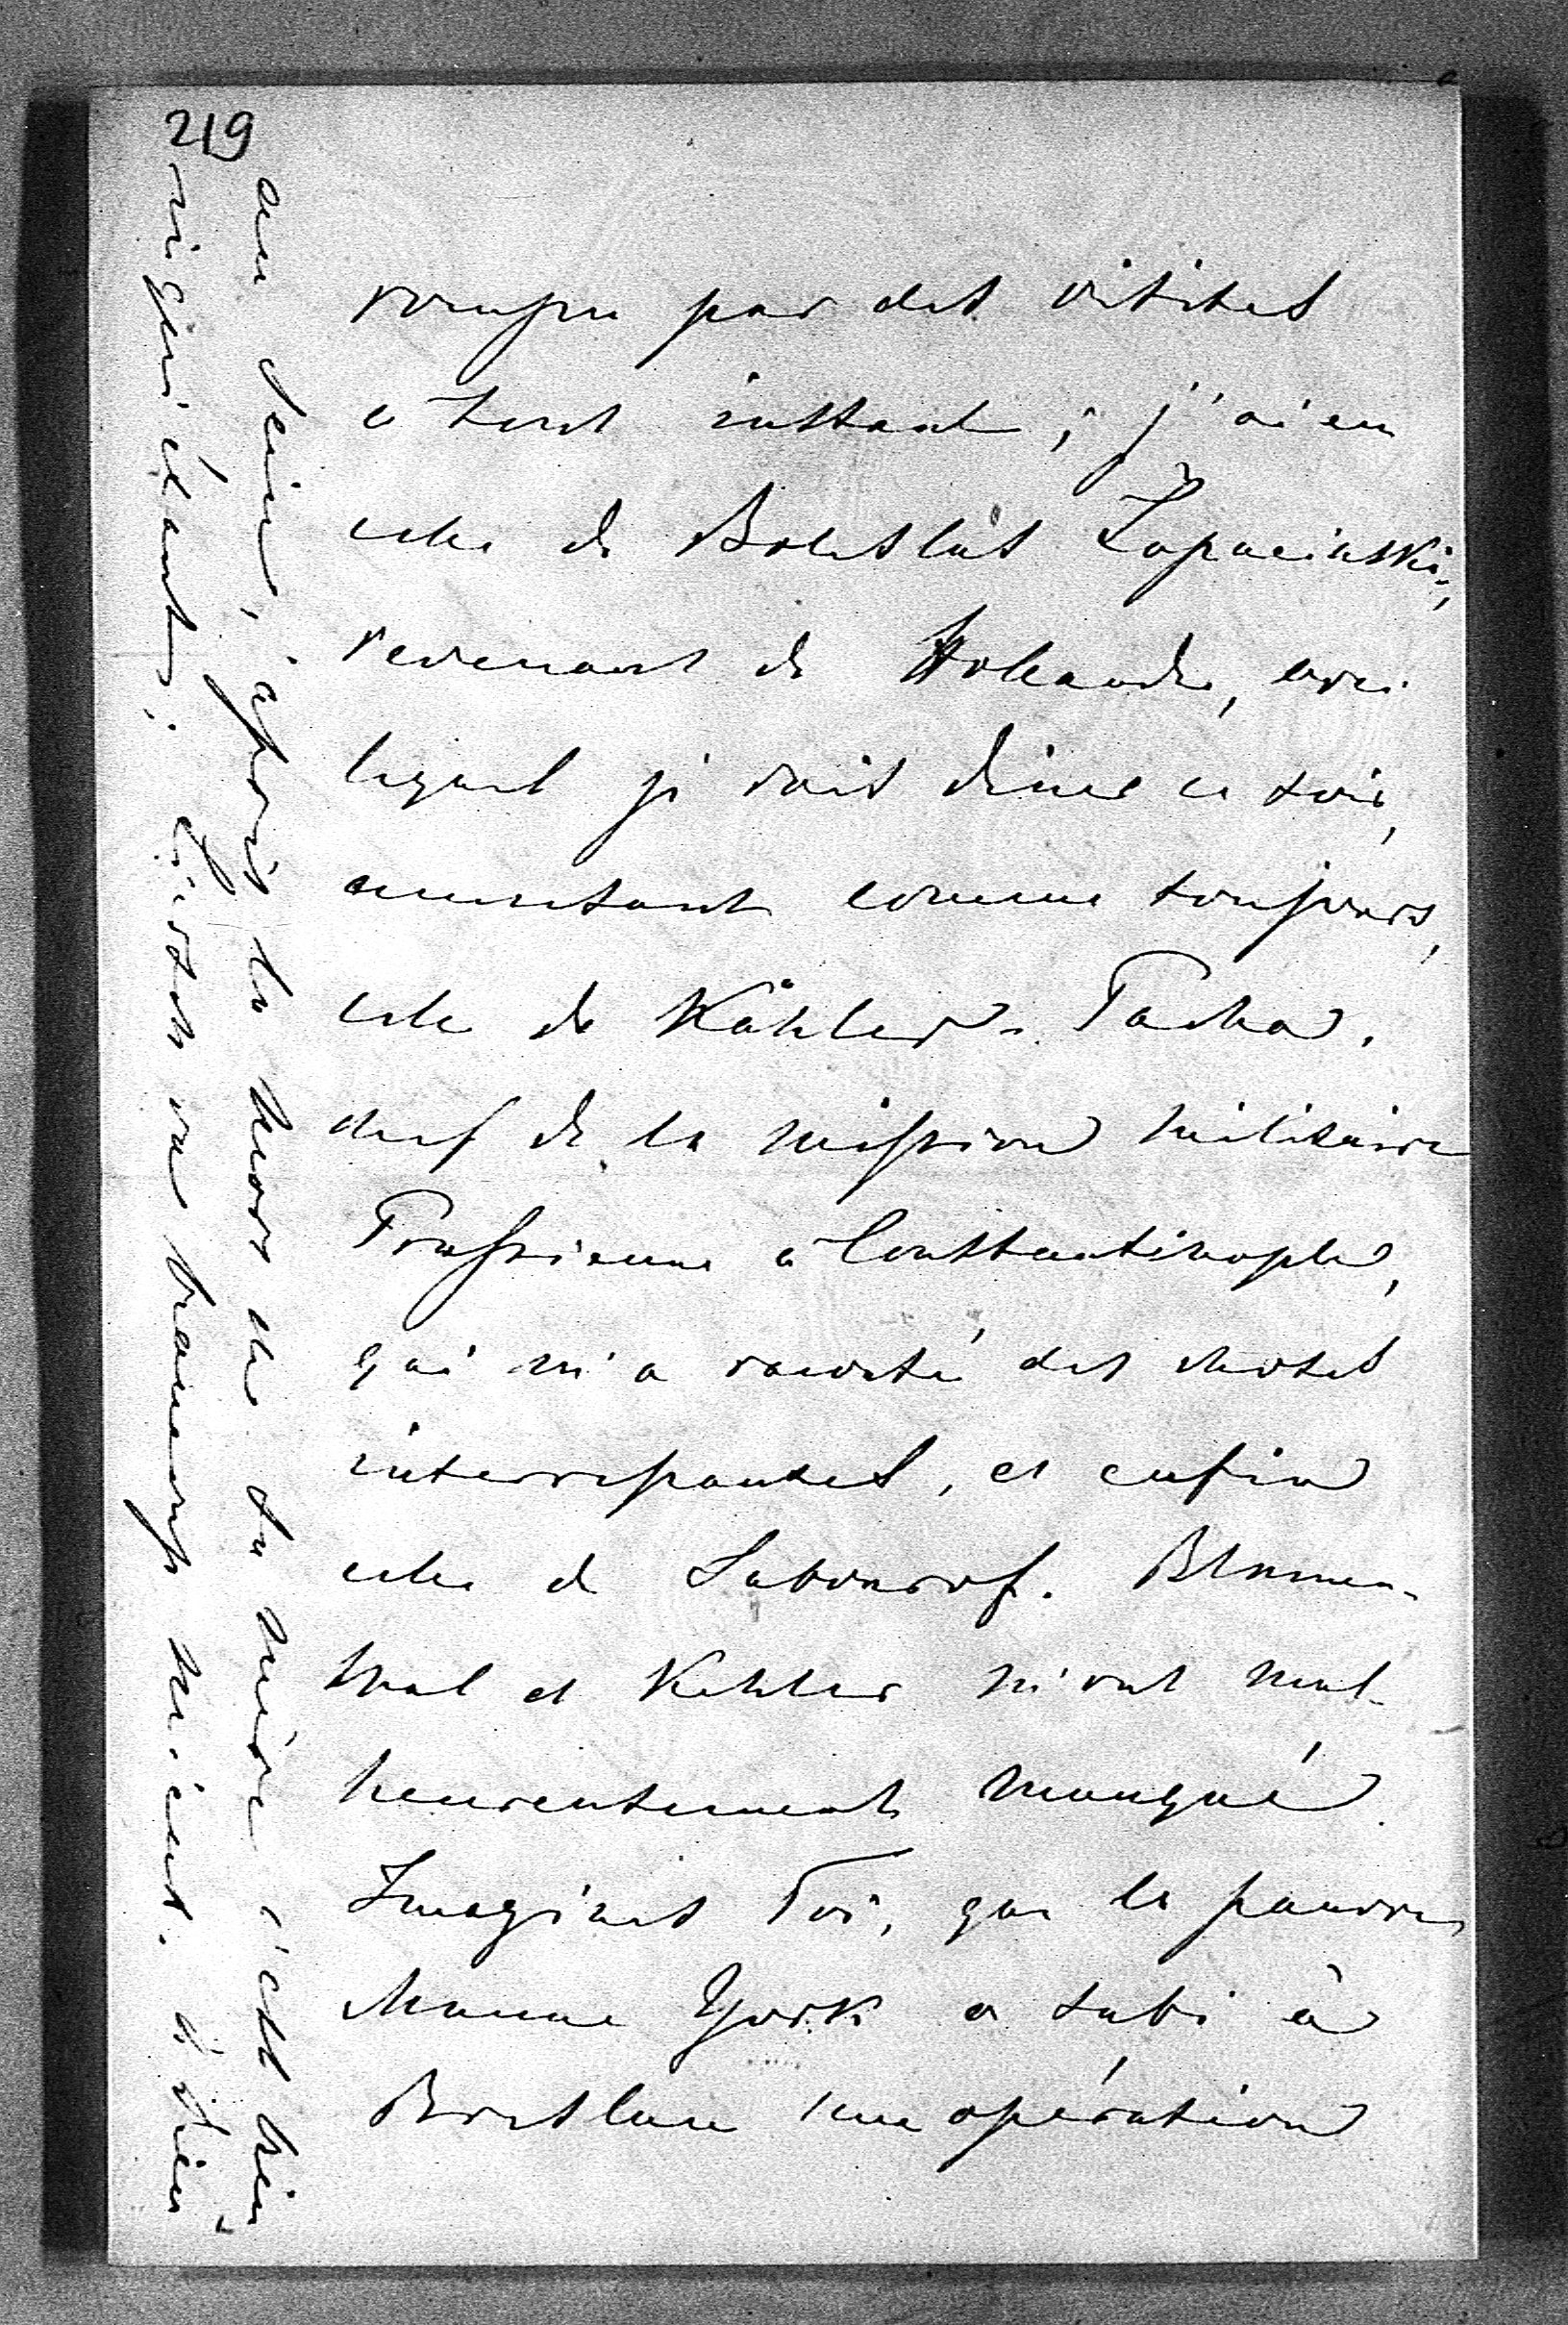 219
rompu par des visites
a tout instant; j'ai eu
celle de Boleslas Łopacinski,
revenant de Hollande, avec
lequel je vais diner ce soir,
amusant comme toujours,
celle de Kähler-Pacha,
chef de la mission militaire
Prussienne a Constantinople,
qui m'a raconté des choses
interressantes, et enfin
celle de Sabourof. Blumen-
thal et Kehler m'ont mal-
heureusement manqué.
Imagines Toi, que la pauvre
Manne York a subi à
Breslau une opération
au sein, après la mort de sa mère c'est bien
inquiétant; va beaucoup mieux. a Dieu